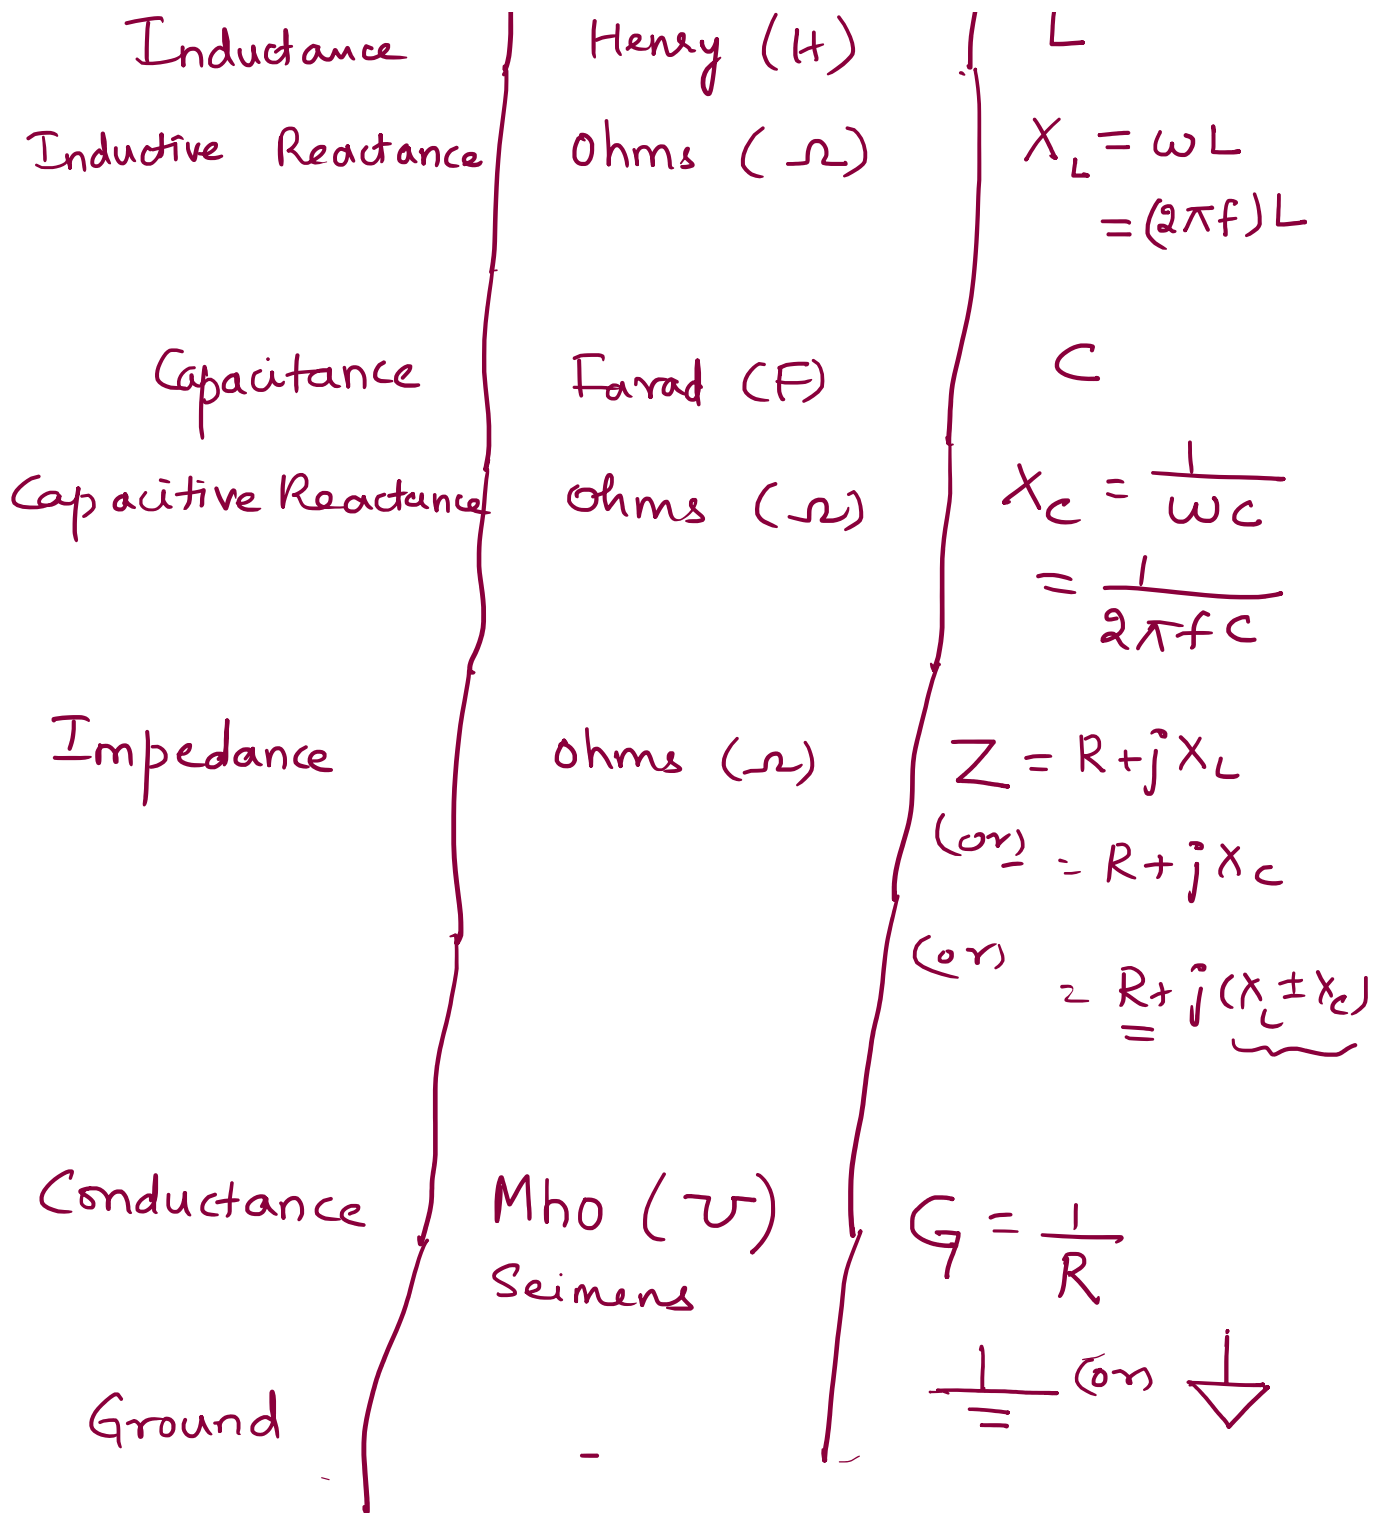 Inductance Henry (H) L
Inductive Reactance Ohms (Ω) X_L = ωL
= (2πf)L
Capacitance Farad (F) C
Capacitive Reactance Ohms (Ω) X_C = 1/ωC
= 1/2πfC
Impedance Ohms (Ω) Z = R + jX_L
(or) = R + jX_C
(or)
= R + j(X_L ± X_C)
Conductance Mho (℧) G = 1/R
Seimens
(or)
Ground -